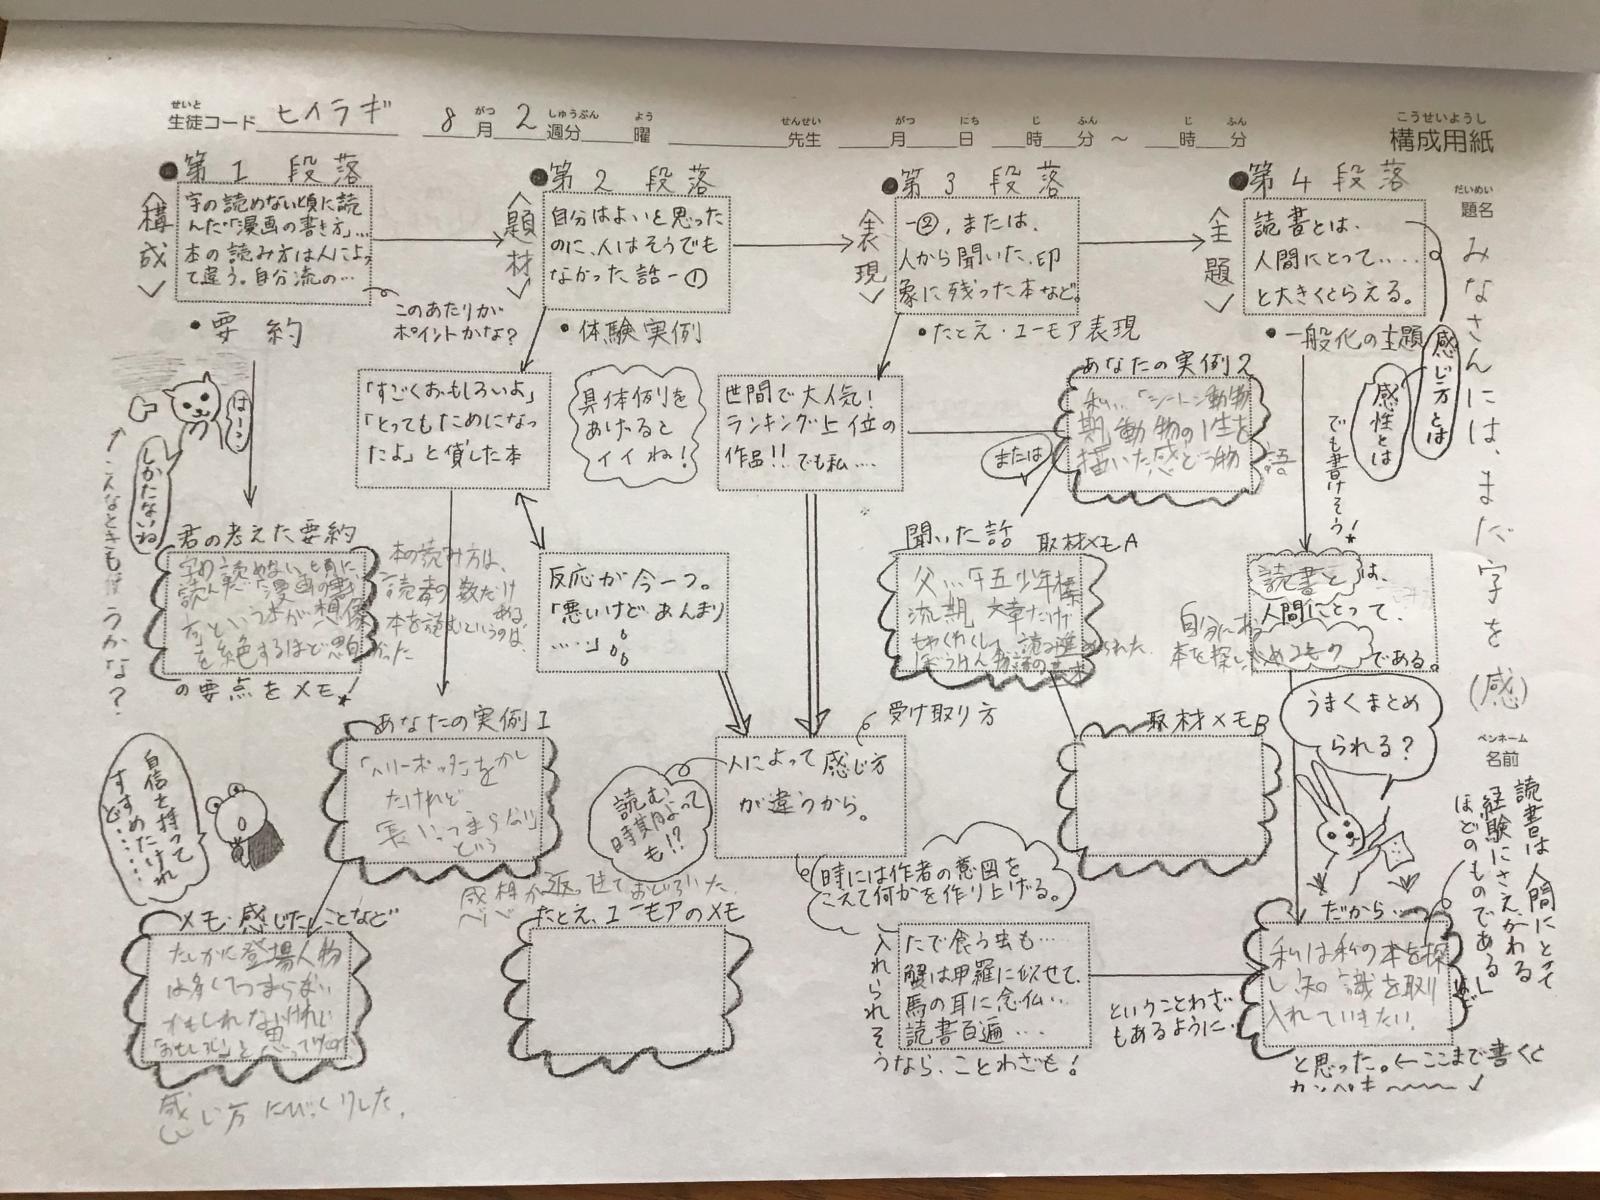 せいと
生徒コード ヒイラギ 8 がつ 月 2 しゅうぶん 週分 よう 曜 せんせい 先生 がつ 月 にち 日 じ 時 ふん 分 ～ じ 時 ふん 分
こうせいようし
構成用紙
だいめい
題名
みなさんには、まだ字を (感)
ペンネーム
名前
●第1段落
〈構成〉
字の読めない頃に読
んだ「漫画の書き方」…
本の読み方は人によっ
て違う。自分流の…
このあたりが
ポイントかな?
・要約
はーン
しかたないね
こんなときも
うかな?
君の考えた要約
字の読めない頃に
読んだ「漫画の書き
方」という本が想像
を絶するほど面白かった
の要点をメモ!
本の読み方は、
読者の数だけ
ある。
本を読むというのは、
●第2段落
〈題材〉
自分はよいと思った
のに、人はそうでも
なかった話ー①
・体験実例
「すごくおもしろいよ」
「とってもためになっ
たよ」と貸した本
具体例を
あげると
イイね!
反応が今一つ。
「悪いけどあんまり
……」
あなたの実例1
「ハリーポッター」をかし
たけれど
「長い、つまらない」
という
感想が返ってきておどろいた。
自信を持って
すすめたけれ
ど……
メモ・感じたことなど
たしかに登場人物
は多くてつまらない
かもしれないけれど
「おもしろい」と思っていたので
感じ方にびっくりした。
たとえ、ユーモアのメモ
●第3段落
〈表現〉
ー②、または、
人から聞いた、印
象に残った本など。
・たとえ・ユーモア表現
世間で大人気!
ランキング上位の
作品!! でも私…
または
あなたの実例2
私…「シートン動物
期」動物の1生を
描いた感どう物
語
聞いた話 取材メモA
父…「十五少年漂
流期」文章だけ
もわくわくし、読み進められた。
ぼうけん物語の
取材メモB
受け取り方
人によって感じ方
が違うから。
読む
時期によって
も!?
時には作者の意図を
こえて何かを作り上げる。
たで食う虫も…
蟹は甲羅に似せて、
馬の耳に念仏…
読書百遍…
入れられそうなら、ことわざも!
ということわざ
もあるように…
●第4段落
〈主題〉
読書とは、
人間にとって……
と大きくとらえる。
・一般化の主題
感じ方とは
感性とは
でも書けそう!
読書とは、
人間にとって、
である。
自分にあ
本を探し
うまくまとめ
られる?
だから…
私は私の本を探
し知識を取り
入れていきたい。
と思った。←ここまで書くと
カンペキ
読書は人間にとって
経験にさえかわる
ほどのものである」
など